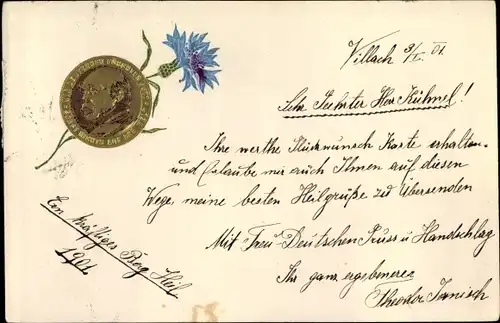 Villach 3/I. 01.
Sehr Geehrter Herr Kühnel!
Ihre werthe Glückwunsch Karte erhalten
und Erlaube mir auch Ihnen auf diesen
Wege, meine besten Heilgrüße zu Übersenden
Mit Treu-Deutschen Gruss u Handschlag
Ihr ganz ergebener
Theodor
Ein kräftiges Berg Heil
1901